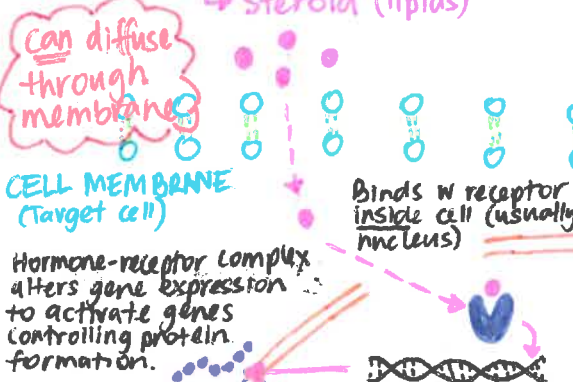 → steroid (lipids)
can diffuse
through
membrane
CELL MEMBRANE
(Target cell)
Binds w receptor
inside cell (usually
nucleus)
Hormone-receptor complex
alters gene expression
to activate genes
controlling protein
formation.